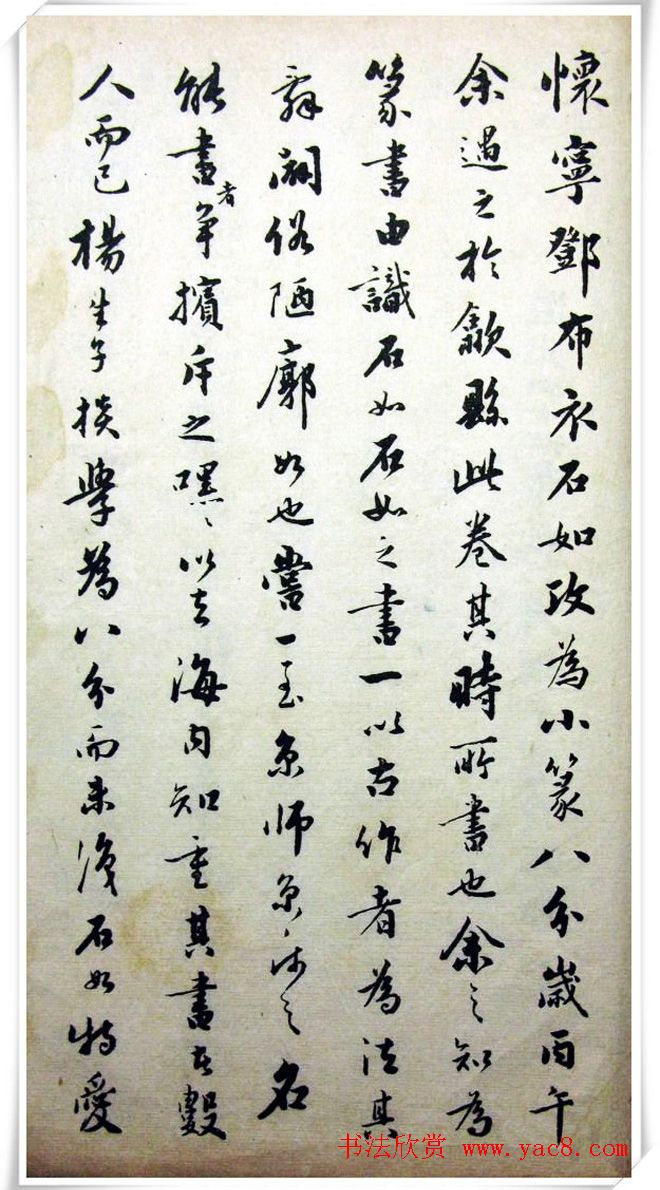 懷寧鄧布衣石如攻為小篆八分歲丙午
余遇之於歙縣此卷其時所書也余之知為
篆書由識石如石如之書一以古作者為法其
辭闢俗陋廓如也嘗一至京師京〻師之名
能書者争擯斥之嘿〻以去海内知重其書者數
人而已楊生子掞學為八分而未濩石如特愛
书法欣赏 www.yac8.com